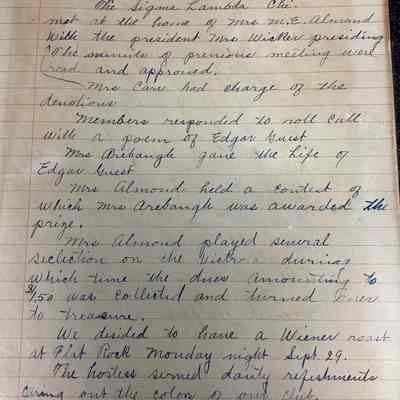 The Sigma Lambda Chi.
met at the home of Mrs M.E. Almond
with the president Mrs Wicker presiding
The minuits of previous meeting were
read and approved.
Mrs Care had charge of the
devotions
Members responded to roll call
with a poem of Edgar Guest
Mrs Arebaugh gave the life of
Edgar Guest
Mrs Almond held a contest of
which Mrs Arebaugh was awarded the
prize.
Mrs Almond played several
seclection on the Victrola during
which time the dues amounting to
$1.50 was collected and turned over
to treasure.
We decided to have a Wiener roast
at Flat Rock Monday night Sept. 29.
The hostess served danty refreshments
caring out the colors of our club.